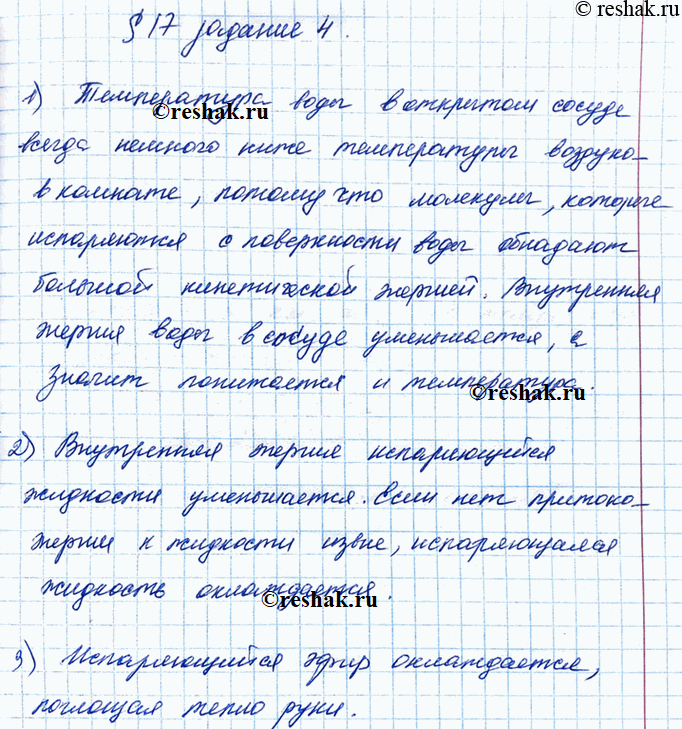 © reshak.ru
§ 17 задание 4.
1) Температура воды в открытом сосуде
© reshak.ru
всегда немного ниже температуры воздуха
в комнате, потому что молекулы, которые
испаряются с поверхности воды обладают
большой кинетической энергией. Внутренняя
энергия воды в сосуде уменьшается, а
значит понижается и температура.
© reshak.ru
2) Внутренняя энергия испаряющейся
жидкости уменьшается. Если нет притока
энергии к жидкости извне, испаряющаяся
жидкость охлаждается.
© reshak.ru
3) Испаряющийся эфир охлаждается,
поглощая тепло руки.